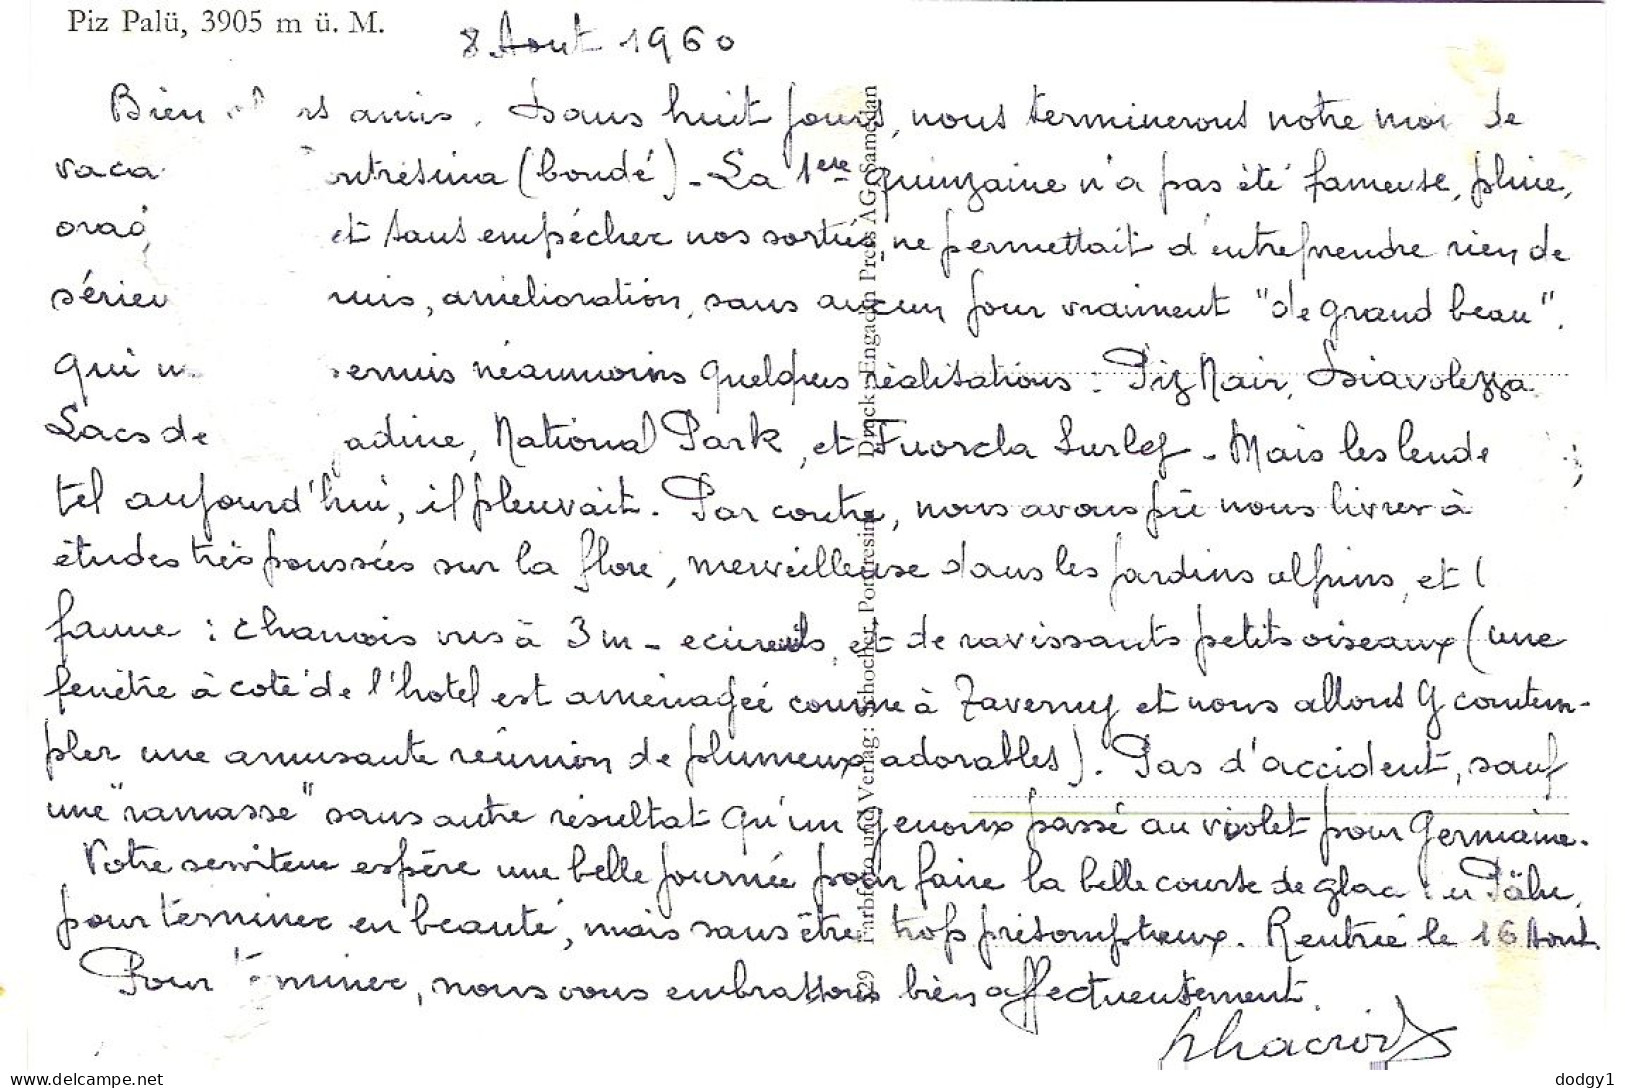 Piz Palü, 3905 m ü. M.
8 Aout 1960
Bien rs amis. Dans huit jours, nous terminerons notre moi de
vaca ontrésina (bondé) - La 1ère quinzaine n'a pas été fameuse, pluie,
orag et sans empêcher nos sorties, ne permettait d'entreprendre rien de
sérieu uis, amélioration, sans aucun jour vraiment "de grand beau".
Qui n ermis néanmoins quelques réalisations : Piz Nair, Diavolezza
Lacs de adine, National Park, et Fuorcla Surlej - Mais les lende
tel aujourd'hui, il pleuvait. Par contre, nous avons pû nous livrer à
études très poussées sur la flore, merveilleuse dans les jardins alpins, et l
faune : chamois vus à 3 m - ecureuils, et de ravissants petits oiseaux (une
fenêtre à coté de l'hotel est aménagée comme à Taverny et nous allons y contem-
pler une amusante réunion de plumeux adorables). Pas d'accident, sauf
une "ramasse" sans autre résultat qu'un genoux passé au violet pour Germaine.
Votre serviteur espère une belle journée pour faire la belle course de glac du Pälu,
pour terminer en beauté, mais sans être trop présomptueux. Rentrée le 16 Aout.
Pour terminer, nous vous embrassons bien affectueusement.
929 Farbfoto und Verlag: Schocher, Pontresina Druck: Engadin Press AG, Samedan
dodgy1